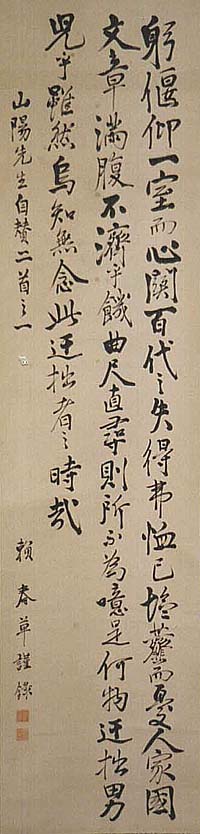 躬偃仰一室而心関百代之失得弗恤己塩虀而憂人家国
文章満腹不済乎饑曲尺直尋則所不為噫是何物迂拙男
児乎雖然烏知無念此迂拙者之時哉
山陽先生自賛二首之一
頼春草謹録